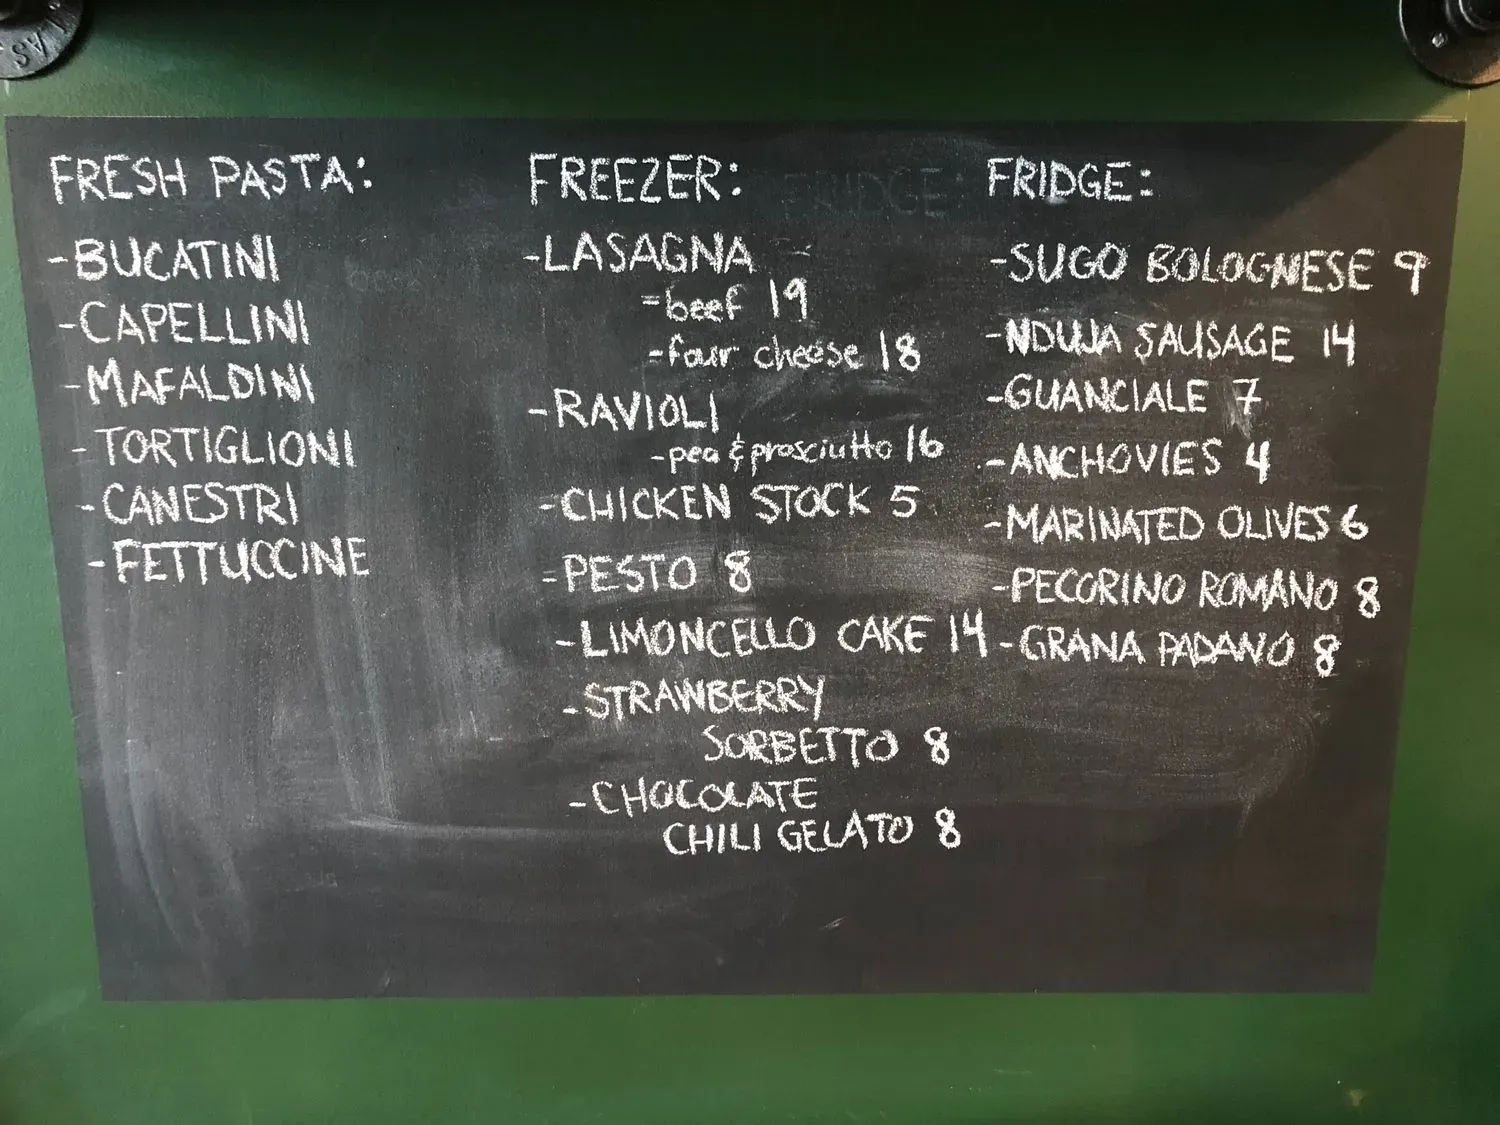 FRESH PASTA:
-BUCATINI
-CAPELLINI
-MAFALDINI
-TORTIGLIONI
-CANESTRI
-FETTUCCINE
FREEZER:
-LASAGNA
-beef 19
-four cheese 18
-RAVIOLI
-pea & prosciutto 16
-CHICKEN STOCK 5
-PESTO 8
-LIMONCELLO CAKE 14
-STRAWBERRY
SORBETTO 8
-CHOCOLATE
CHILI GELATO 8
FRIDGE:
FRIDGE:
-SUGO BOLOGNESE 9
-NDUJA SAUSAGE 14
-GUANCIALE 7
-ANCHOVIES 4
-MARINATED OLIVES 6
-PECORINO ROMANO 8
-GRANA PADANO 8